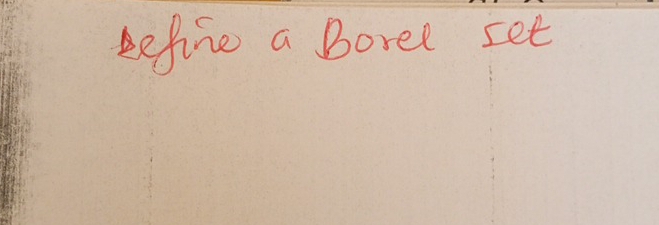 Define a Borel set